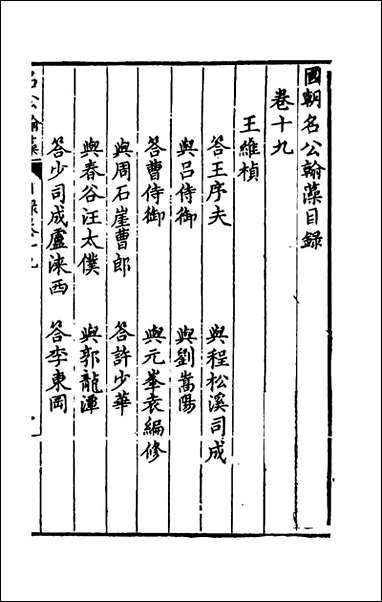 國朝名公翰藻目錄
卷十九
王維楨
答王序夫 與程松溪司成
與呂侍御 與劉嵩陽
答曹侍御 與元峯袁編修
與周石崖曹郎 答許少華
與春谷汪太僕 與郭龍潭
答少司成盧涞西 答李東岡
名公翰藻 目錄卷十九